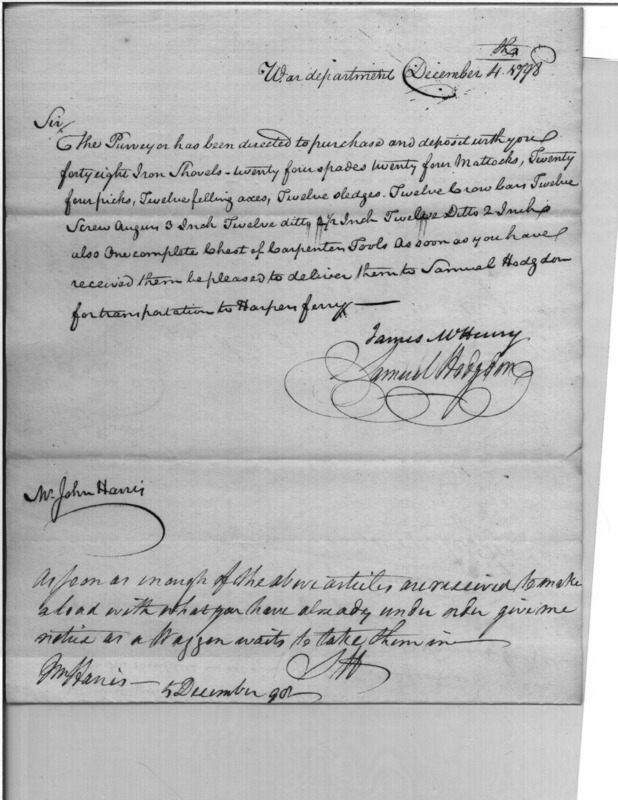 War department December 4th 1798
Sir,
The Purveyor has been directed to purchase and deposit with you
forty eight Iron Shovels - twenty four spades twenty four Matlocks, Twenty
four picks, Twelve felling axes, Twelve sledges. Twelve Crow bars Twelve
Screw Augurs 3 Inch Twelve ditto 2 1/2 Inch Twelve Ditto 2 Inch
also One complete Chest of Carpenters Tools As soon as you have
received them be pleased to deliver them to Samuel Hodgdon
for transportation to Harpers ferry —
James McHenry
Samuel Hodgdon
Mr John Harris
As soon as enough of the above articles are received to make
a load with what you have already under order give me
notice as a Waggon waits to take them in
SH
Mr Harris —
5 December 98